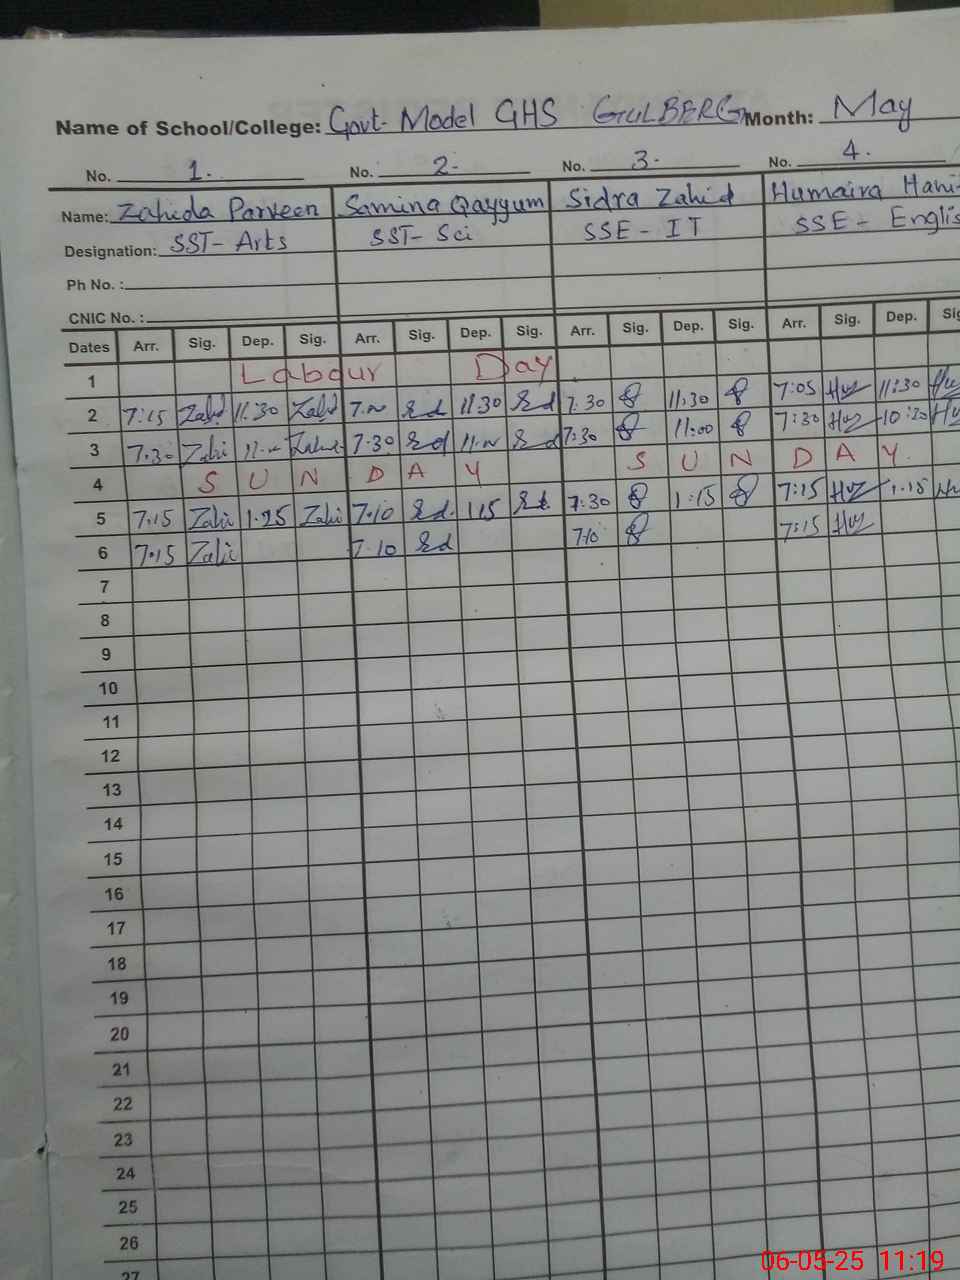 Name of School/College: Govt- Model GHS GULBERG Month: May
No. 1. No. 2. No. 3. No. 4.
Name: Zahida Parveen Samina Qayyum Sidra Zahid Humaira Hani
Designation: SST- Arts SST- Sci SSE - IT SSE - Englis
Ph No. :
CNIC No. :
Dates Arr. Sig. Dep. Sig. Arr. Sig. Dep. Sig. Arr. Sig. Dep. Sig. Arr. Sig. Dep. Sig
1 Labour Day
2 7:15 11:30 11:30 7.30 11:30 7:05 11:30
3 7.30 7.30 7:30 11:00 7:30 10:20
4 S U N D A Y S U N D A Y
5 7.15 Zahi 1.25 Zahi 7.10 115 7:30 1:15 7:15 1.15
6 7.15 7.10 710 7:15
7
8
9
10
11
12
13
14
15
16
17
18
19
20
21
22
23
24
25
26
27
06-05-25 11:19